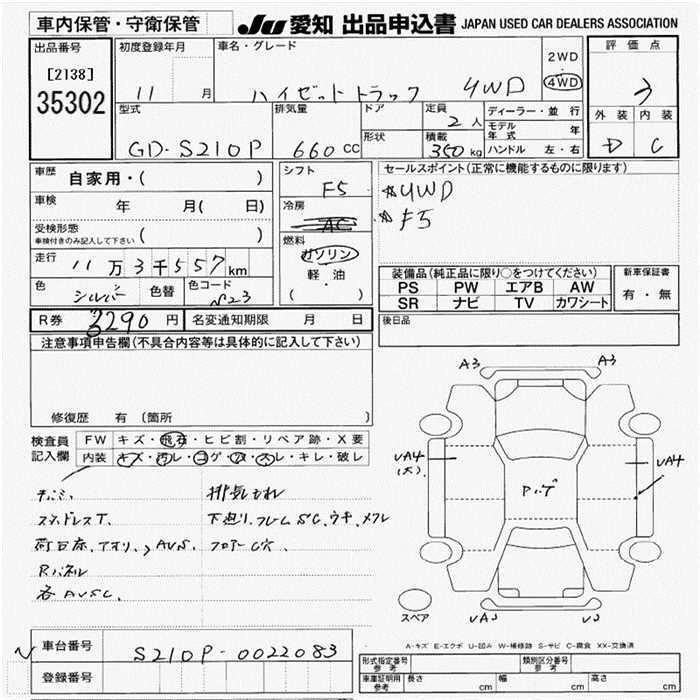 車内保管・守衛保管
JU 愛知 出品申込書 JAPAN USED CAR DEALERS ASSOCIATION
出品番号
[2138]
35302
初度登録年月
11 月
車名・グレード
ハイゼット トラック 4WD
2WD
4WD
評価点
外装 内装
D C
型式
GD-S210P
排気量
660 cc
ドア
形状
定員
2 人
積載
350 kg
ディーラー・並行
モデル年式 年
ハンドル 左・右
車歴
自家用・( )
車検
年 月( 日)
受検形態
車検付きのみ記入して下さい ( )
走行
11万3千557km
色
シルバー
色替
色コード
N23
シフト
F5
冷房
AC
燃料
ガソリン
軽・油
( ・ )
セールスポイント(正常に機能するものに限ります)
☆4WD
☆F5
装備品(純正品に限り○をつけてください)
PS PW エアB AW
SR ナビ TV カワシート
新車保証書
有・無
R券 3290 円
名変通知期限 月 日
後日品
注意事項申告欄(不具合内容等は具体的に記入して下さい)
修復歴 有 (箇所 )
検査員
記入欄
FW キズ・飛石・ヒビ割・リペア跡・X要
内装 キズ・汚レ・コゲ・穴・スレ・キレ・破レ
排気もれ
下廻り、フレームSC、ウキ、メフレ
Rパネル
各AVSC、
A3 A3
UA4
(大)
UA4
スペア
A-キズ E-エクボ U-凹み W-補修跡 S-サビ C-腐食 XX-交換済
車台番号
S210P-0022083
登録番号
形式指定番号
参考
類別区分番号
参考
車庫証明用
参考
長さ cm
幅 cm
高さ cm